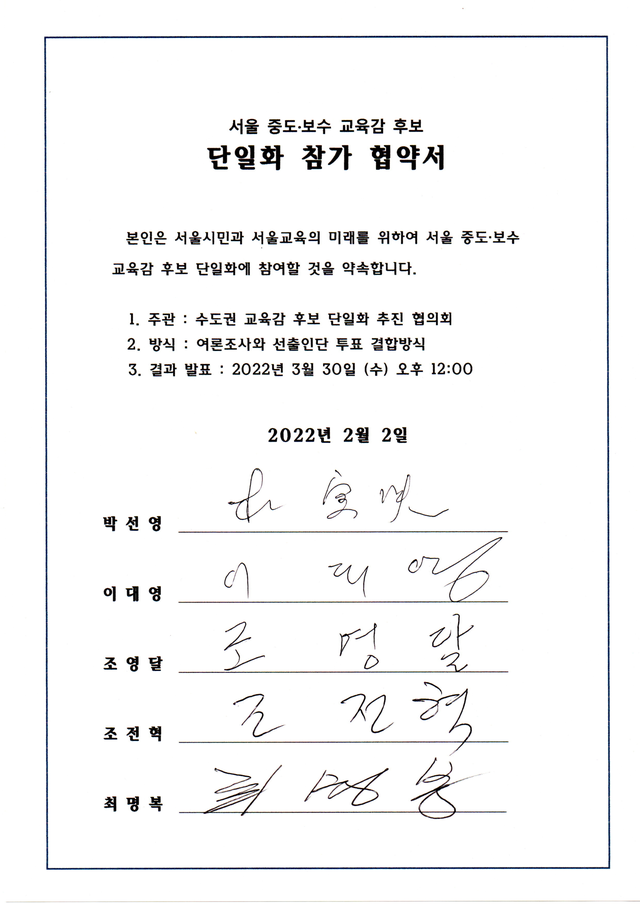 서울 중도·보수 교육감 후보
단일화 참가 협약서
본인은 서울시민과 서울교육의 미래를 위하여 서울 중도·보수
교육감 후보 단일화에 참여할 것을 약속합니다.
1. 주관 : 수도권 교육감 후보 단일화 추진 협의회
2. 방식 : 여론조사와 선출인단 투표 결합방식
3. 결과 발표 : 2022년 3월 30일 (수) 오후 12:00
2022년 2월 2일
박선영
이대영 이 대 영
조영달 조 영 달
조전혁 조 전 혁
최명복 최 명 복